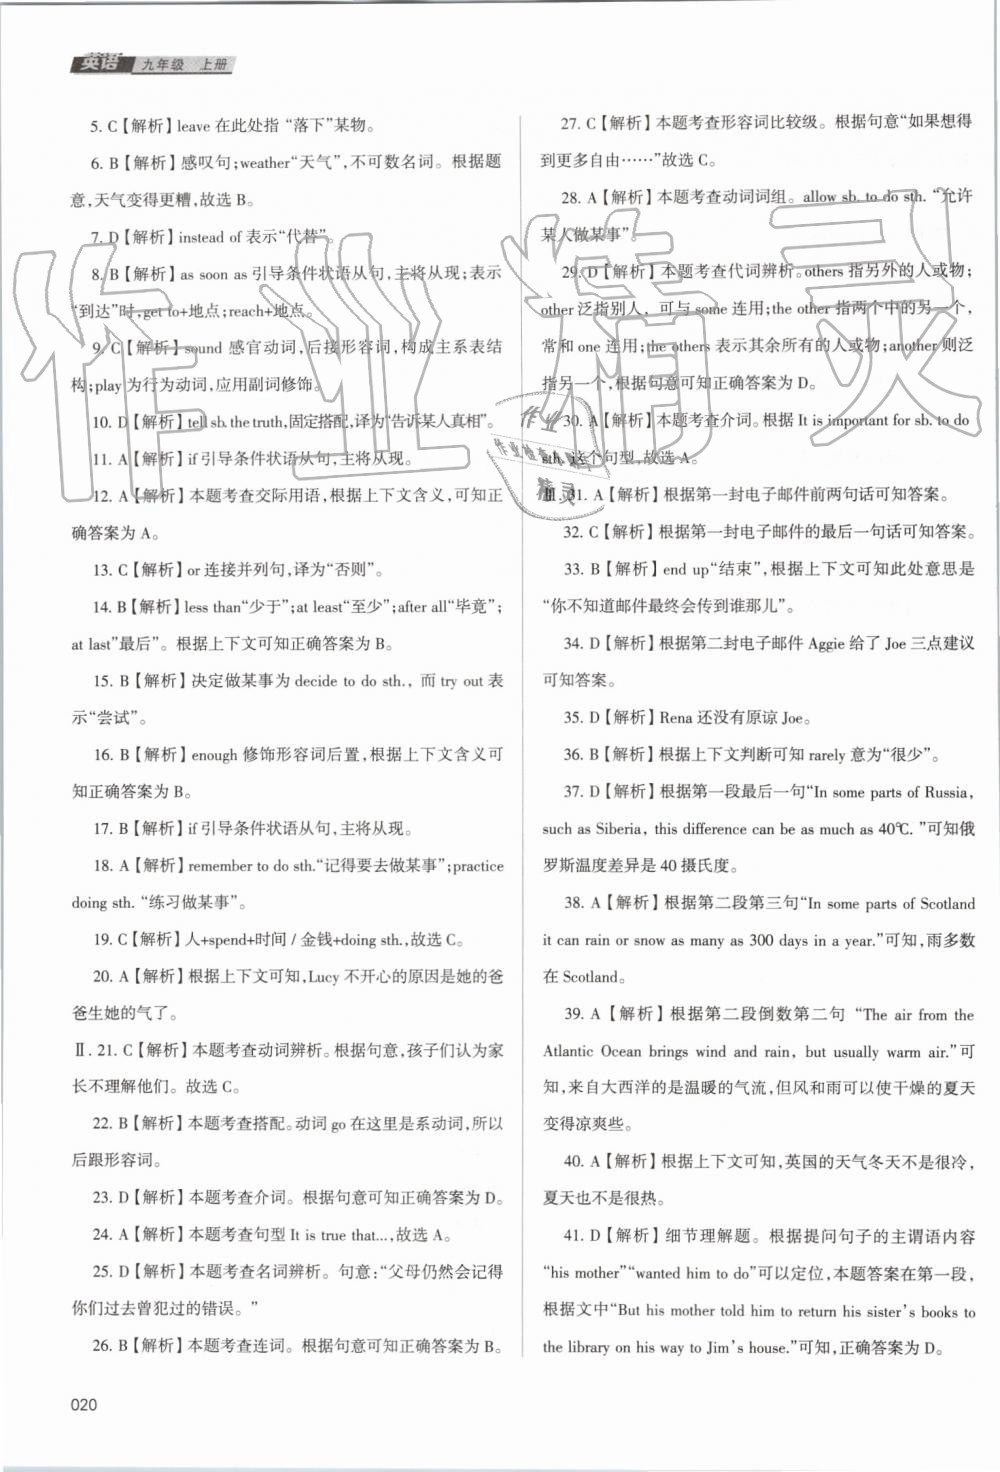 英语 九年级 上册
5. C【解析】leave 在此处指 “落下”某物。
6. B【解析】感叹句;weather“天气”,不可数名词。根据题
意,天气变得更糟,故选 B。
7. D【解析】instead of 表示“代替”。
8. B【解析】as soon as 引导条件状语从句,主将从现;表示
“到达”时,get to+地点;reach+地点。
9. C【解析】sound 感官动词,后接形容词,构成主系表结
构;play 为行为动词,应用副词修饰。
10. D【解析】tell sb. the truth,固定搭配,译为“告诉某人真相”。
11. A【解析】if 引导条件状语从句,主将从现。
12. A【解析】本题考查交际用语,根据上下文含义,可知正
确答案为 A。
13. C【解析】or 连接并列句,译为“否则”。
14. B【解析】less than“少于”;at least“至少”;after all“毕竟”;
at last”最后”。根据上下文可知正确答案为 B。
15. B【解析】决定做某事为 decide to do sth.，而 try out 表
示“尝试”。
16. B【解析】enough 修饰形容词后置,根据上下文含义可
知正确答案为 B。
17. B【解析】if 引导条件状语从句,主将从现。
18. A【解析】remember to do sth.“记得要去做某事”;practice
doing sth. “练习做某事”。
19. C【解析】人+spend+时间 / 金钱+doing sth.,故选 C。
20. A【解析】根据上下文可知, Lucy 不开心的原因是她的爸
爸生她的气了。
Ⅱ. 21. C【解析】本题考查动词辨析。根据句意,孩子们认为家
长不理解他们。故选 C。
22. B【解析】本题考查搭配。动词 go 在这里是系动词,所以
后跟形容词。
23. D【解析】本题考查介词。根据句意可知正确答案为 D。
24. A【解析】本题考查句型 It is true that...,故选 A。
25. D【解析】本题考查名词辨析。句意:“父母仍然会记得
你们过去曾犯过的错误。”
26. B【解析】本题考查连词。根据句意可知正确答案为 B。
27. C【解析】本题考查形容词比较级。根据句意“如果想得
到更多自由……”故选 C。
28. A【解析】本题考查动词词组。allow sb. to do sth. “允许
某人做某事”。
29. D【解析】本题考查代词辨析。others 指另外的人或物;
other 泛指别人，可与 some 连用;the other 指两个中的另一个,
常和 one 连用;the others 表示其余所有的人或物;another 则泛
指另一个,根据句意可知正确答案为 D。
30. A【解析】本题考查介词。根据 It is important for sb. to do
sth. 这个句型,故选 A。
Ⅲ. 31. A【解析】根据第一封电子邮件前两句话可知答案。
32. C【解析】根据第一封电子邮件的最后一句话可知答案。
33. B【解析】end up“结束”，根据上下文可知此处意思是
“你不知道邮件最终会传到谁那儿”。
34. D【解析】根据第二封电子邮件 Aggie 给了 Joe 三点建议
可知答案。
35. D【解析】Rena 还没有原谅 Joe。
36. B【解析】根据上下文判断可知 rarely 意为“很少”。
37. D【解析】根据第一段最后一句“In some parts of Russia,
such as Siberia, this difference can be as much as 40℃. ”可知俄
罗斯温度差异是 40 摄氏度。
38. A【解析】根据第二段第三句“In some parts of Scotland
it can rain or snow as many as 300 days in a year.”可知,雨多数
在 Scotland。
39. A【解析】根据第二段倒数第二句 “The air from the
Atlantic Ocean brings wind and rain, but usually warm air.”可
知,来自大西洋的是温暖的气流,但风和雨可以使干燥的夏天
变得凉爽些。
40. A【解析】根据上下文可知,英国的天气冬天不是很冷,
夏天也不是很热。
41. D【解析】细节理解题。根据提问句子的主谓语内容
“his mother”“wanted him to do”可以定位,本题答案在第一段,
根据文中“But his mother told him to return his sister's books to
the library on his way to Jim's house.”可知,正确答案为 D。
020
作业精灵